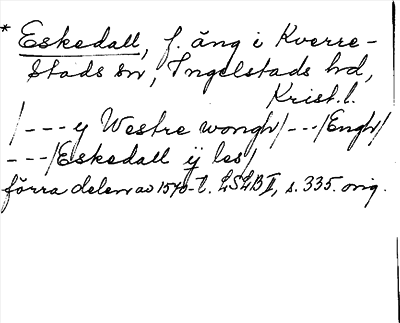 * Eskedall, f. äng i Kverre-
stads sn, Ingelstads hd,
Krist. l.
/ - - - y Westre wongh / - - - / Engh /
- - - / Eskedall ij les /
förra delen av 1570-t. LSLB II, s. 335. orig.